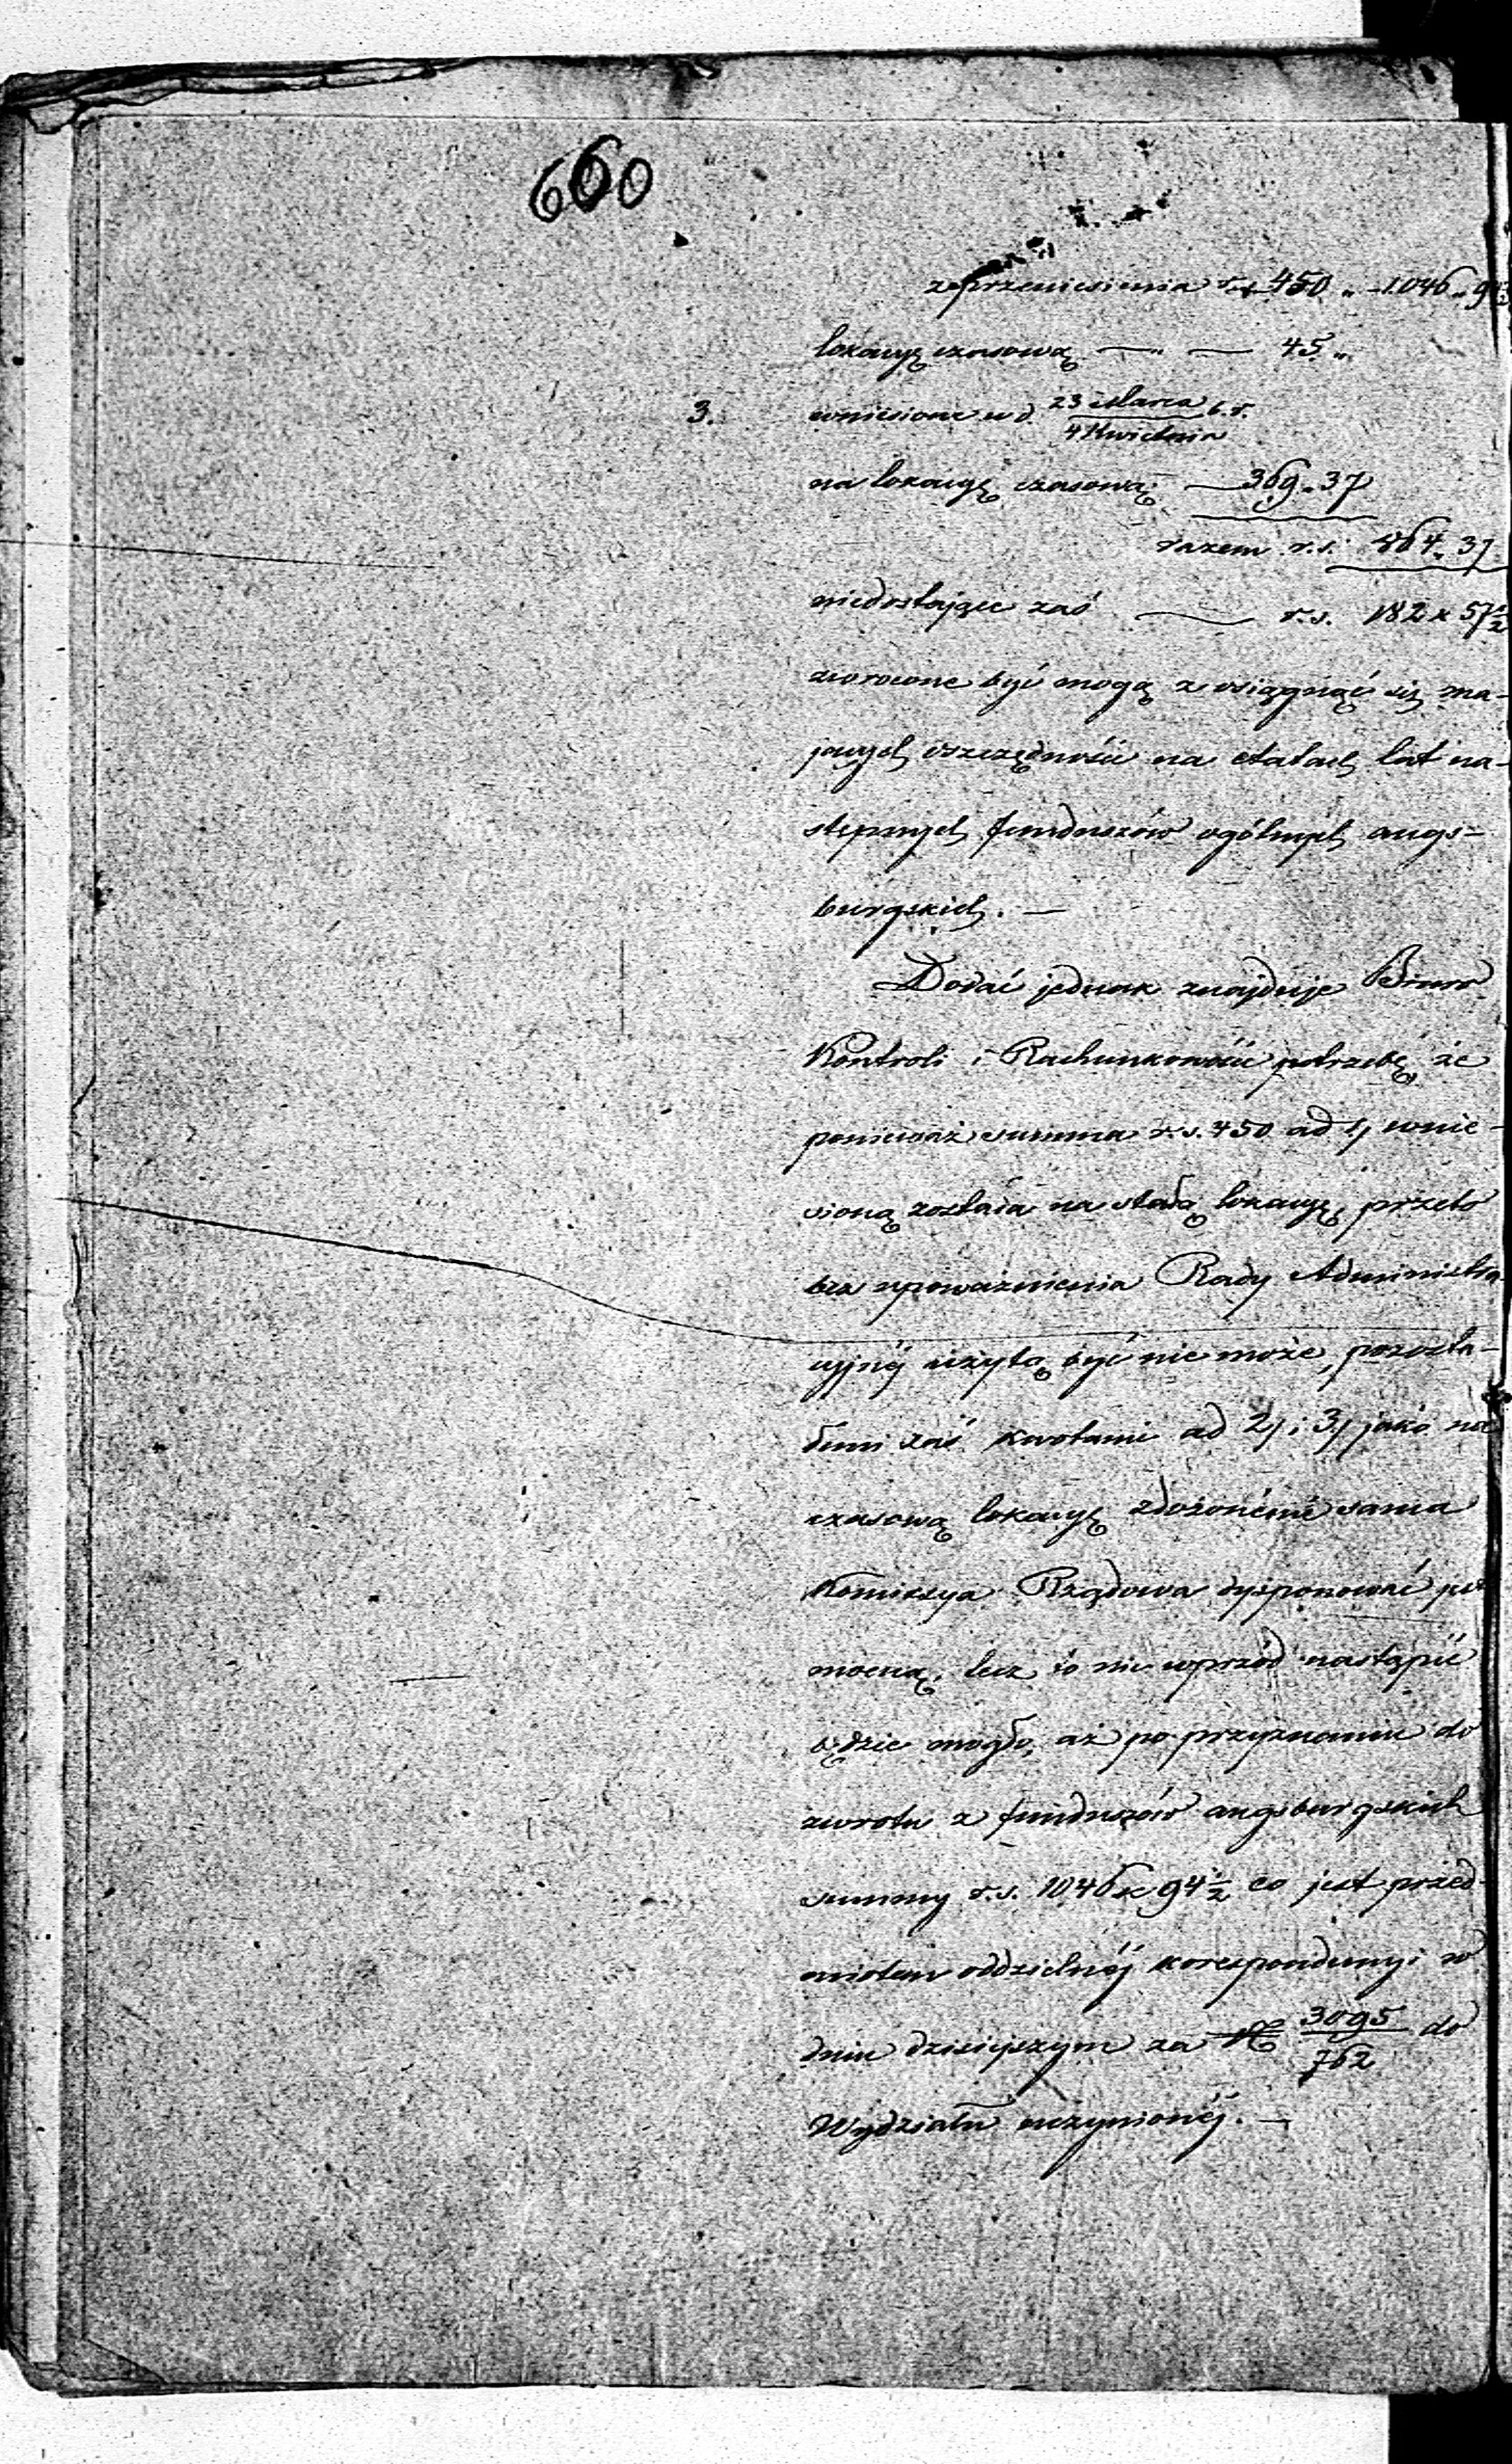 660
z przeniesienia r.s. 450 „ — 1046 „ 94
lokacyę czasową — „ — 45 „
3. wniesione w d. 23 Marca / 4 Kwietnia b.r.
na lokacyę czasową — 369 „ 37
razem r.s. 864 „ 37
niedostające zaś — r.s. 182 k 57½
zwrócone być mogą z osiągnąć się ma-
jących oszczędności na etatach lat na-
stępnych funduszów ogólnych augs-
burgskich. —
Dodać jednak znajduje Biuro
Kontroli i Rachunkowości potrzebę, że
ponieważ summa r.s. 450 ad 1/ wnie-
sioną została na stałą lokacyę, przeto
bez upoważnienia Rady Administra
cyjnéj użytą być nie może, pozosta-
łemi zaś kwotami ad 2/ i 3/ jako na
czasową lokacyę złożonémi sama
Kommissya Rządowa dysponować jest
mocną, lecz to nie wprzód nastąpić
będzie mogło, aż po przyznaniu do
zwrotu z funduszów augsburgskich
summy r.s. 1046 k 94½ co jest przed-
miotem oddzielnéj korespondencyi w
dniu dzisiejszym za N 3095 / 762 do
Wydziału uczynionéj. —